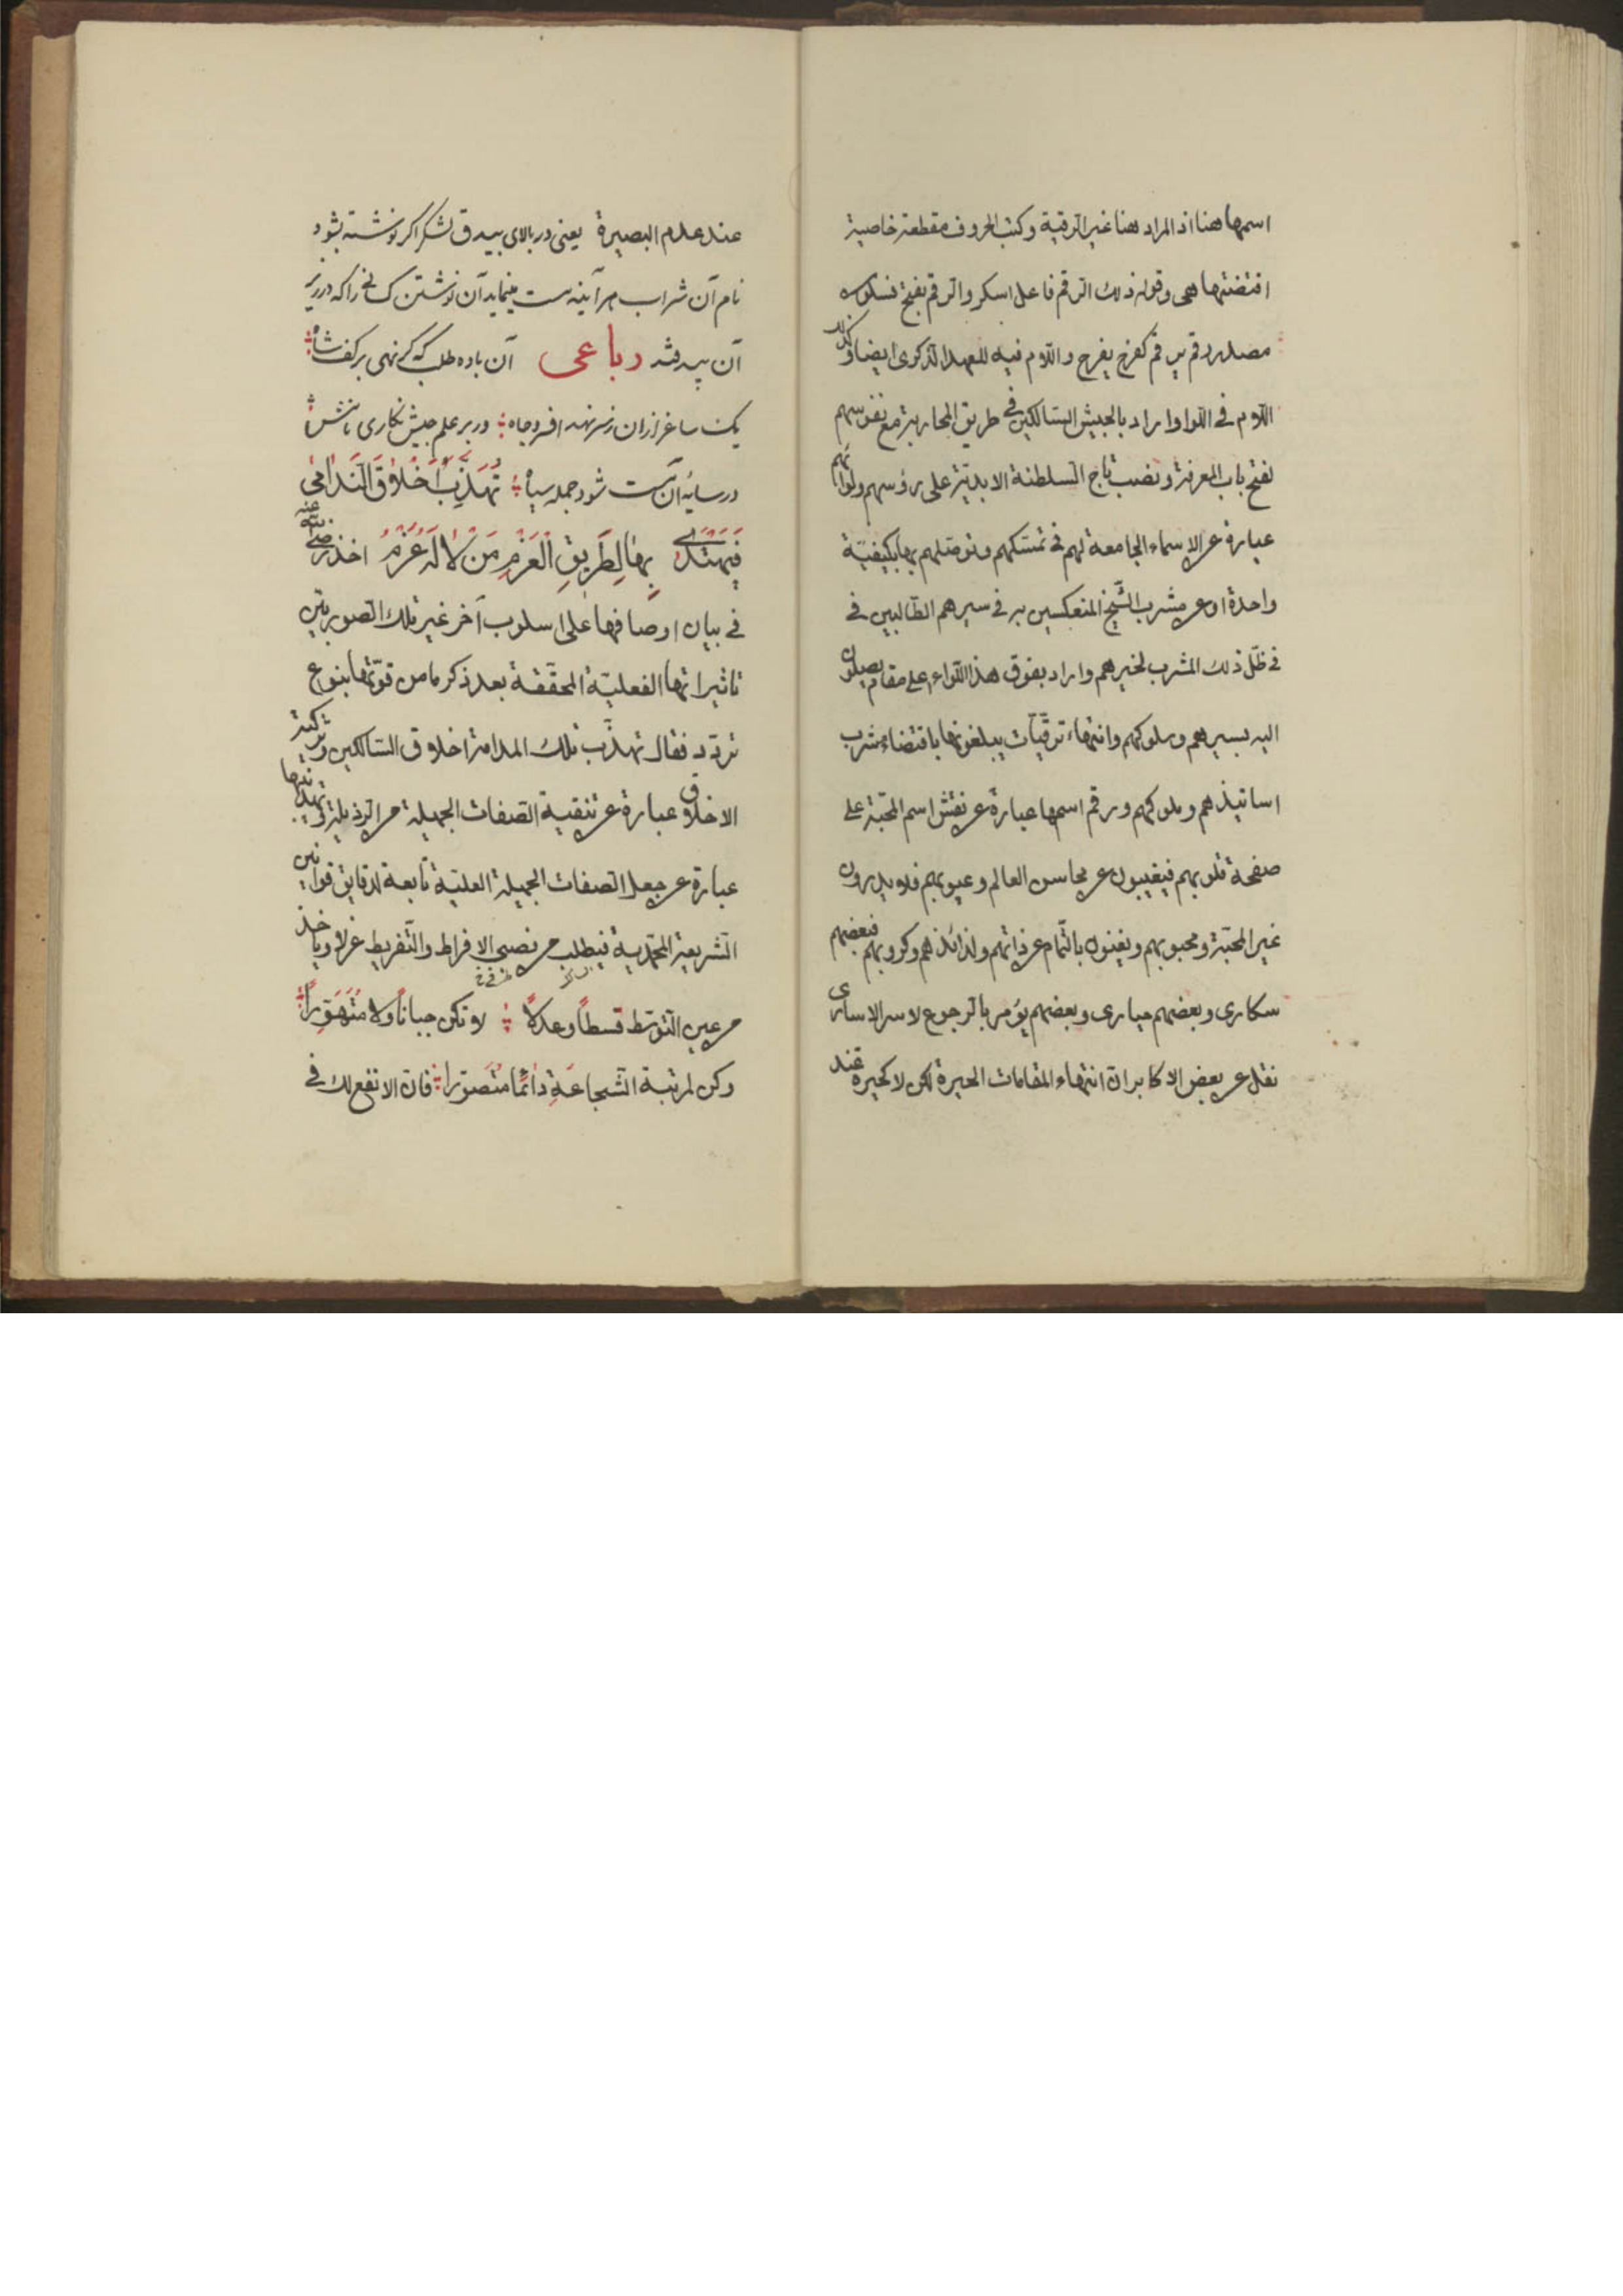 اسمها هنا اذ المراد هنا غير الرقية وكتب الحروف مقطعة خاصية
اقتضتها هى وقوله ذلك الرقم فاعل اسكر والرقم بفتح فسكون
مصدر رقم يرقم كفرح يفرح واللام فيه للعهد الذكرى ايضا وكذلك
اللام فى اللوا واراد بالجيش السالكين فى طريق المحاربة مع نفوسهم
لفتح باب المعرفة ونصب تاج السلطنة الابدية على رؤسهم ولوائهم
عبارة عن الاسماء الجامعة لهم فى تمسكهم وتوصلهم بها بكيفية
واحدة او عن مشرب الشيخ المنعكسين به فى سيرهم الطالبين فى
فى ظل ذلك المشرب لخيرهم واراد بفوق هذا اللواء اعلى مقام يصلون
اليه بسيرهم وسلوكهم وانتهاء ترقيات يبلغونها باقتضاء مشرب
اساتيذهم وملوكهم ورقم اسمها عبارة عن نقش اسم المحبة على
صفحة قلوبهم فيغيبون عن محاسن العالم وعيوبهم فلا يدرون
غير المحبة ومحبوبهم ويفنون بالتمام عن ذاتهم ولذائذهم وكروبهم فبعضهم
سكارى وبعضهم حيارى وبعضهم يؤمر بالرجوع لاسر الاسارى
نقل عن بعض الاكابر ان انتهاء المقامات الحيرة لكن لا كحيرة عند
عند عدم البصيرة يعنى در بالاى بيدق لشكر اكر نوشته بشود
نام آن شراب هر آينه مست مينمايد آن نوشتن كسانى را كه در زير
آن بيدقند رباعى آن باده طلب كه كر نهى بر كف شاه
يك ساغر از ان ز سر نهد افسر وجاه ؛ ور بر علم جيش نكارى نامش
در سايه آن مست شود جمله سپاه ؛ تُهَذِّبُ اَخْلَاقَ النَّدَامٰى
فَيَهْتَدِى بِهَا لِطَرِيقِ الْعَزْمِ مَنْ لَا لَهُ عَزْمُ اخذ رضى الله عنه
فى بيان اوصافها على اسلوب آخر غير تلك الصورتين
تاثيراتها الفعلية المحققة بعد ذكر ما من قوتها بنوع
تردد فقال تهذب تلك المدامة اخلاق السالكين وتزكية
الاخلاق عبارة عن تنقية الصفات الجميلة من الرذيلة وتهذيبها
عبارة عن جعل الصفات الجميلة العلية تابعة لدقايق قوانين
الشريعة المحمدية فيطلب من نصبى الافراط والتفريط عزلا وياخذ
من عين التوسط قسطاً وعدلاً ؛ لا تكن جباناً ولا متهوّراً
وكن لمرتبة الشجاعة دائماً متصوّرا ؛ فان الانفع لك فى